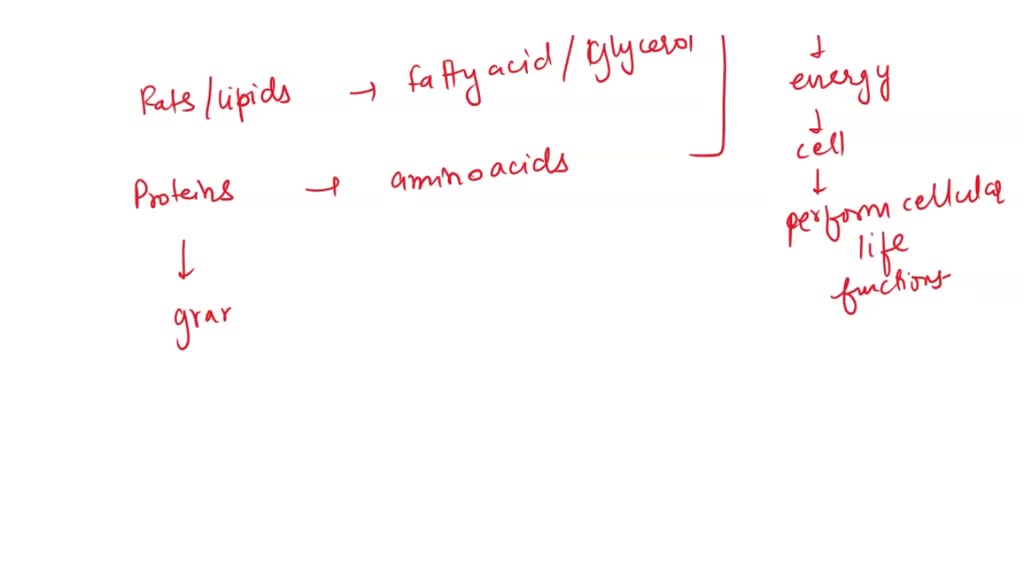 Fats/lipids → fatty acid/Glycerol
Proteins → aminoacids
↓
grar
↓
energy
↓
cell
↓
perform cellular
life
functions